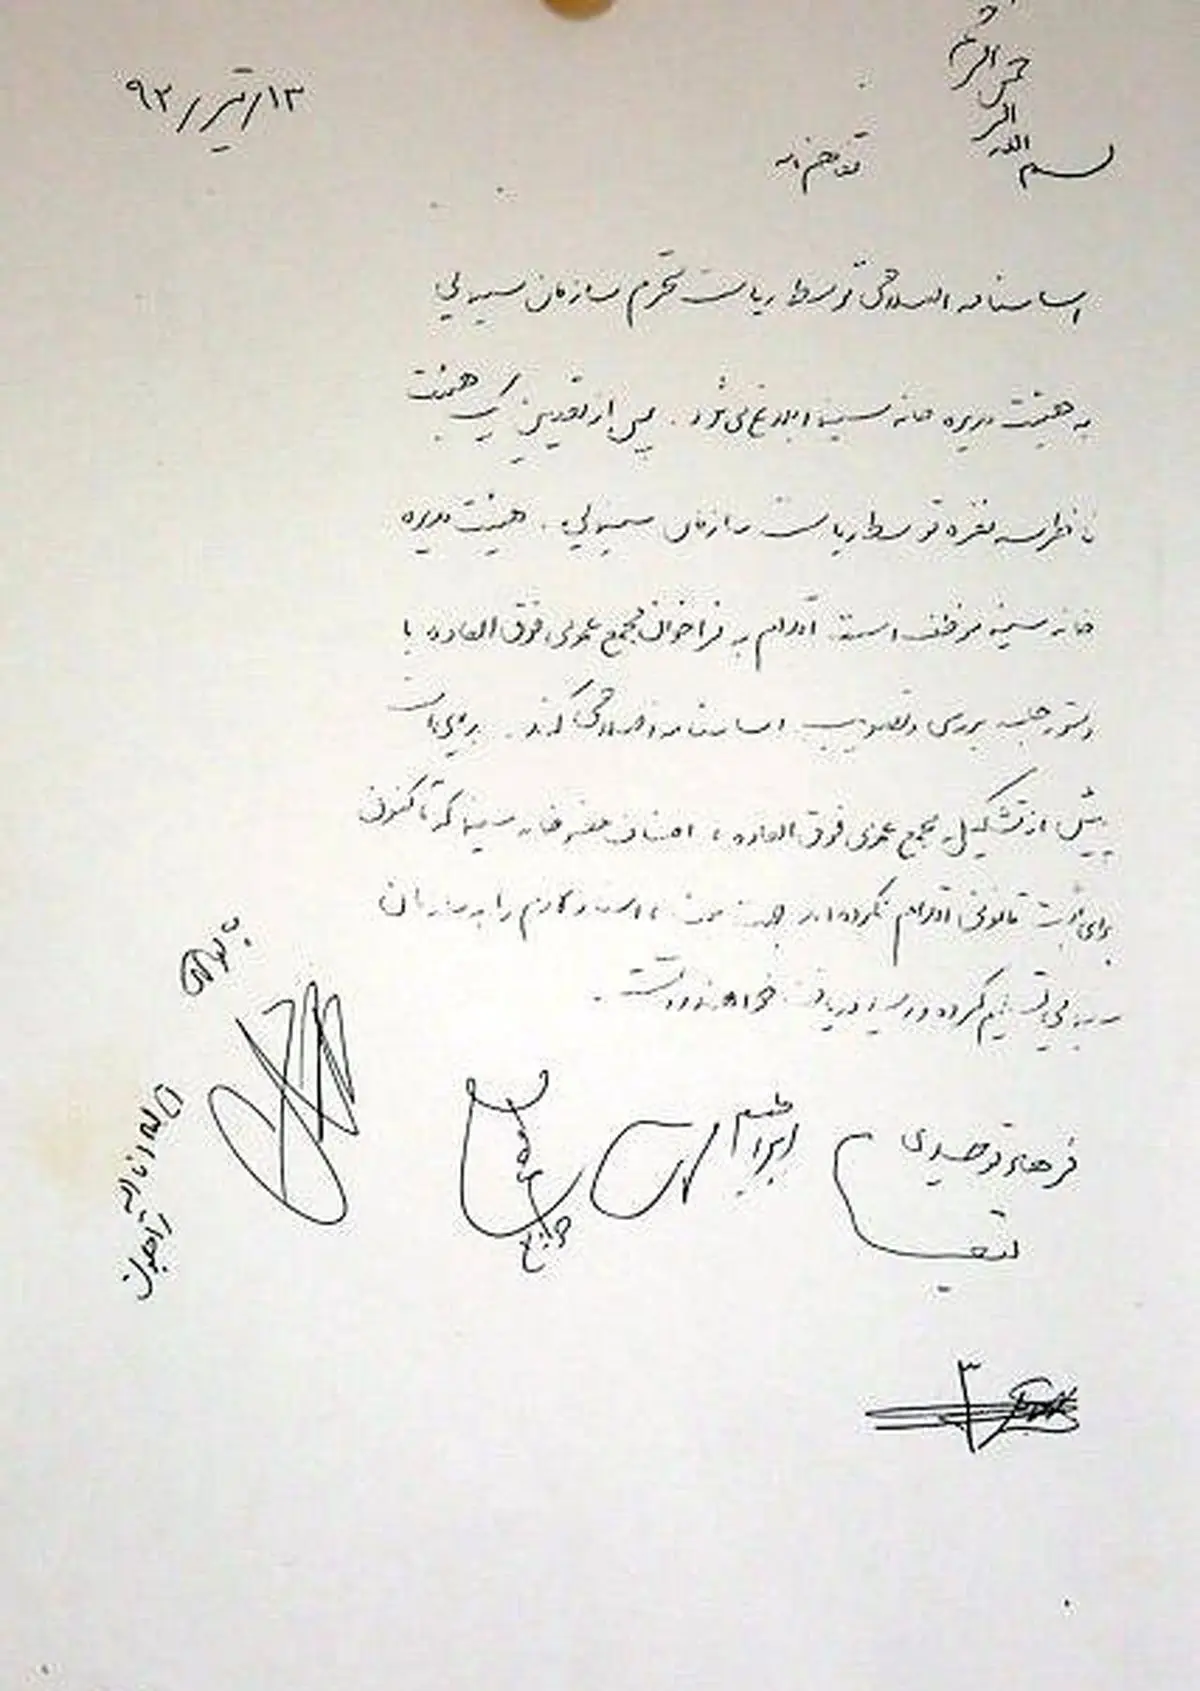 بسم الله الرحمن الرحیم
۱۳/تیر/۹۲
اساسنامه اصلاحی توسط ریاست محترم سازمان سینمایی
به هیئت مدیره خانه سینما ابلاغ می شود. پس از تعیین یک هیئت
ناظر سه نفره توسط ریاست سازمان سینمایی، هیئت مدیره
خانه سینما موظف است اقدام به فراخوان مجمع عمومی فوق العاده با
دستور جلسه بررسی و تصویب اساسنامه اصلاحی کند.
پیش از تشکیل مجمع عمومی فوق العاده، اصناف عضو خانه سینما که تاکنون
برای ثبت قانونی اقدام نکرده اند جهت ثبت اسناد لازم را به سازمان
سینمایی تسلیم کرده و رسید دریافت خواهند داشت.
فرهاد توحیدی
ابراهیم